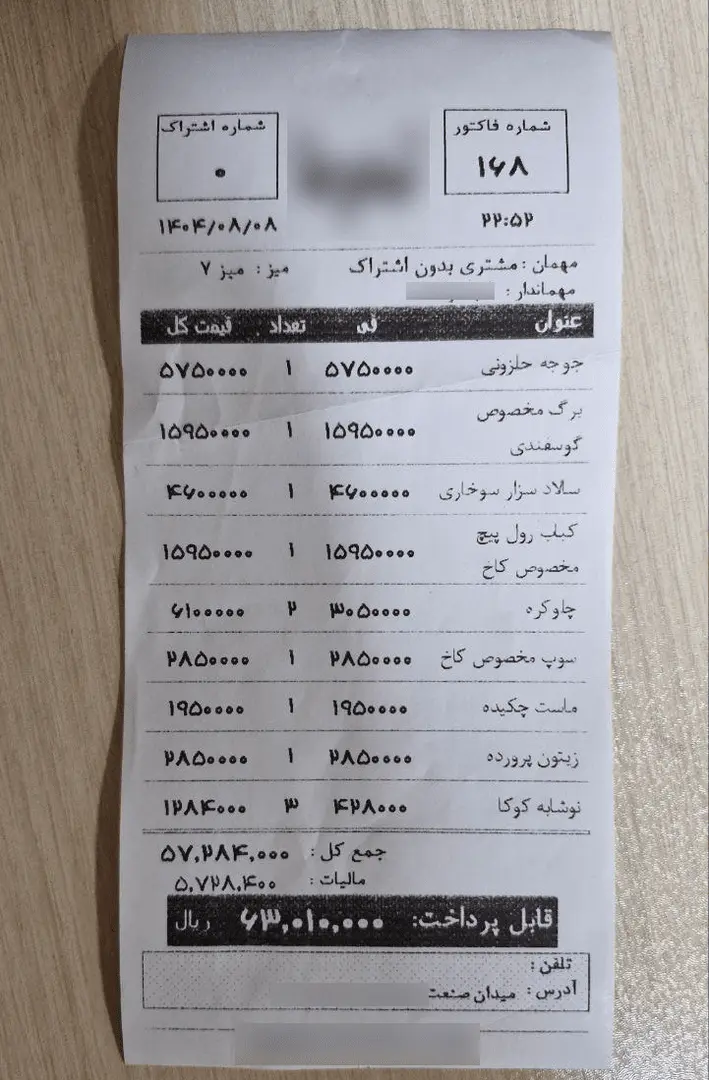 شماره فاکتور
۱۶۸
۲۲:۵۲
شماره اشتراک
۰
۱۴۰۴/۰۸/۰۸
مهمان : مشتری بدون اشتراک میز : میز ۷
مهماندار :
عنوان فی تعداد قیمت کل
جوجه حلزونی ۵۷۵۰۰۰۰ ۱ ۵۷۵۰۰۰۰
برگ مخصوص
گوسفندی ۱۵۹۵۰۰۰۰ ۱ ۱۵۹۵۰۰۰۰
سالاد سزار سوخاری ۴۶۰۰۰۰۰ ۱ ۴۶۰۰۰۰۰
کباب رول پیچ
مخصوص کاخ ۱۵۹۵۰۰۰۰ ۱ ۱۵۹۵۰۰۰۰
چلوکره ۳۰۵۰۰۰۰ ۲ ۶۱۰۰۰۰۰
سوپ مخصوص کاخ ۲۸۵۰۰۰۰ ۱ ۲۸۵۰۰۰۰
ماست چکیده ۱۹۵۰۰۰۰ ۱ ۱۹۵۰۰۰۰
زیتون پرورده ۲۸۵۰۰۰۰ ۱ ۲۸۵۰۰۰۰
نوشابه کوکا ۴۲۸۰۰۰ ۳ ۱۲۸۴۰۰۰
جمع کل : ۵۷,۲۸۴,۰۰۰
مالیات : ۵,۷۲۸,۴۰۰
قابل پرداخت: ۶۳,۰۱۰,۰۰۰ ریال
تلفن :
آدرس : میدان صنعت